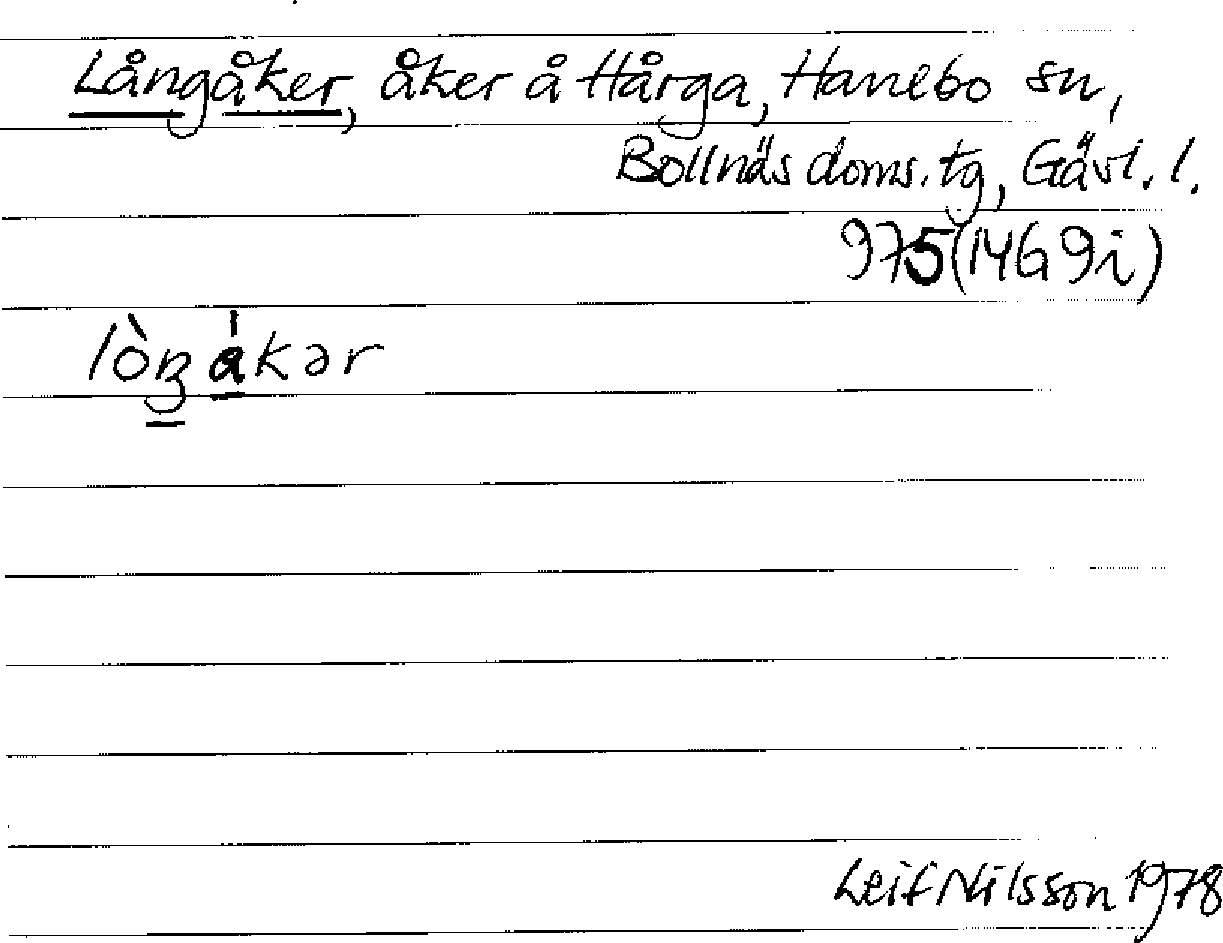 Långåker, åker å Hårga, Hanebo sn,
Bollnäs doms. tg, Gävl. l.
975 (14G 9i)
lòŋ ákər
Leif Nilsson 1978